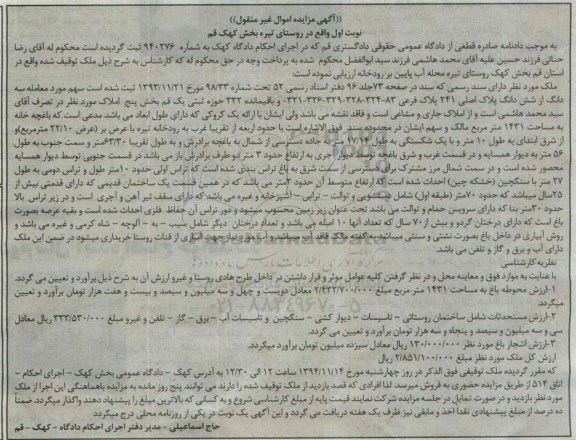 ((آگهی مزایده اموال غیر منقول))
نوبت اول واقع در روستای تیره بخش کهک قم
به موجب دادنامه صادره قطعی از دادگاه عمومی حقوقی دادگستری قم که در اجرای احکام دادگاه کهک به شماره ۹۴۰۲۷۶ ثبت گردیده است محکوم له آقای رضا
حنائی فرزند حسین علیه آقای محمد هاشمی فرزند سید ابوالفضل محکوم شده به پرداخت وجه در حق محکوم له که کارشناس به شرح ذیل ملک توقیف شده واقع در
استان قم بخش کهک روستای تیره محله آب پایین بر رودخانه ارزیابی نموده است
ملک مورد نظر دارای سند رسمی که سند در صفحه ۷۳ جلد ۹۶ دفتر اسناد رسمی ۵۲ تحت شماره ۹۸/۳۳ مورخ ۱۳۹۳/۱۱/۲۱ ثبت شده است سهم مورد معامله سه
دانگ از شش دانگ پلاک اصلی ۲۴۱ پلاک فرعی ۸۳-۳۲۴-۳۲۸-۳۲۹-۳۲۶-۳۲۱ و باقیمانده ۳۲۲ حوزه ثبتی یک قم بخش پنج املاک مورد نظر در تصرف آقای
سید محمد هاشمی است و از املاک جاری و مشاعی است و فاقد نقشه می باشد ولی ایشان با ارائه یک کروکی که دارای طول ابعاد می باشد مدعی است که باغچه خانه
به مساحت ۱۴۳۱ متر مربع مالک و سهم ایشان در محدوده مسیر فوق الاشاره است با حدود اربعه از تقریبا غرب به رودخانه تیره با عرض بر (عرض ۲۲/۱۰ مترمربع) و
از شرق ابتدای به طول ۱۰ متر و با یک شکستگی به طول ۴۷/۱۴ به جاده دسترسی از شمال به باغچه برادرش و به طول تقریبا ۶۳/۳۰ متر و سمت جنوب به طول
۵۶ متر به دیوار همسایه و در قسمت غرب و شرق باغچه توسط دیوار آجری به ارتفاع حدود ۳ متر دو طرف برادرش باز می باشد در قسمت جنوبی توسط دیوار همسایه
محصور شده است و در سمت شمال مرز مشترک برای دسترسی از سمت شرق به باغ تراس بندی شده است که تراس اولی حدود ۱۰متر طول و تراس دومی به طول
۲۷ متر با سنگچین (خشکه چین) احداث شده است که ارتفاع متوسط آن حدود ۲متر می باشد که در همین قسمت یک ساختمان قدیمی که دارای قدمتی بیش از
۲۵سال میباشد که حدود ۷۰متر (طبقه اول) شامل دستشویی و توالت - تراس - آشپزخانه و غیره می باشد که دارای سقف تیر آهن و آجری است و در زیر تراس بالا
حدود ۳۰متر بنا که دارای سرویس حمام و توالت می باشد تحت عنوان زیر زمین محسوب میشود و دور تراس آن حفاظ فلزی احداث شده است و بقیه عرصه بصورت
باغ است که دارای درختان گردو و بیش از ۷۰ سال که تعداد آنها ۱۰ اصله می باشد و تعداد درختان دیگر شامل سیب - به - آلوچه - شاه کرمی و غیره می باشد و
روش آبیاری در داخل باغ بصورت نشتی و سنتی میباشد
دارای آب و برق و گاز و تلفن می باشد.
نظریه کارشناسی
با عنایت به موارد فوق و معاینه محل و در نظر گرفتن کلیه عوامل موثر و قرار داشتن در داخل طرح هادی روستا و غیرو ارزش آن به شرح ذیل برآورد و تعیین می گردد.
۱-ارزش محوطه باغ به مساحت ۱۴۳۱ متر مربع مبلغ ۲/۴۳۲/۷۰۰/۰۰۰ معادل دویست و چهل و سه میلیون و سیصد و بیست و هفت هزار تومان برآورد و تعیین
میگردد.
۲-ارزش مستحدثات شامل ساختمان روستائی - تاسیسات - دیوار کشی - سنگچین و تاسیسات آب - برق - گاز - تلفن و غیرو مبلغ ۳۳۳/۵۳۰/۰۰۰ ریال معادل
سی و سه میلیون و سیصد و پنجاه و سه هزار تومان برآورد و تعیین می گردد.
۳-ارزش اشجار باغ مورد نظر ۱۳۰/۰۰۰/۰۰۰ ریال معادل سیزده میلیون تومان برآورد میگردد.
ارزش کل ملک مورد نظر مبلغ ۲/۸۵۱/۱۰۰/۰۰۰ ریال می باشد
که مقرر گردیده ملک توقیفی فوق الذکر در روز چهارشنبه مورخ ۱۳۹۴/۱۱/۱۴ ساعت ۱۲ الی ۱۲/۳۰ به آدرس کهک - دادگاه عمومی بخش کهک - اجرای احکام -
اتاق ۵۱۴ از طریق مزایده حضوری به فروش میرسد. لذا افرادی که قصد بازدید از ملک توقیف شده را دارند می توانند پنج روز مانده به مزایده باهماهنگی این اجرا از ملک
مورد نظر بازدید و در صورت تمایل در جلسه مزایده شرکت نمایند قیمت پایه از مبلغ کارشناسی شروع و به کسانی که بالاترین مبلغ را پیشنهاد دهند واگذار میگردد. ضمناً
ده درصد از مبلغ پیشنهادی نقدا اخذ و مابقی نیز ظرف یک هفته دریافت می گردد و این آگهی یک نوبت در یکی از روزنامه محلی درج میگردد
حاج اسماعیلی - مدیر دفتر اجرای احکام دادگاه - کهک - قم